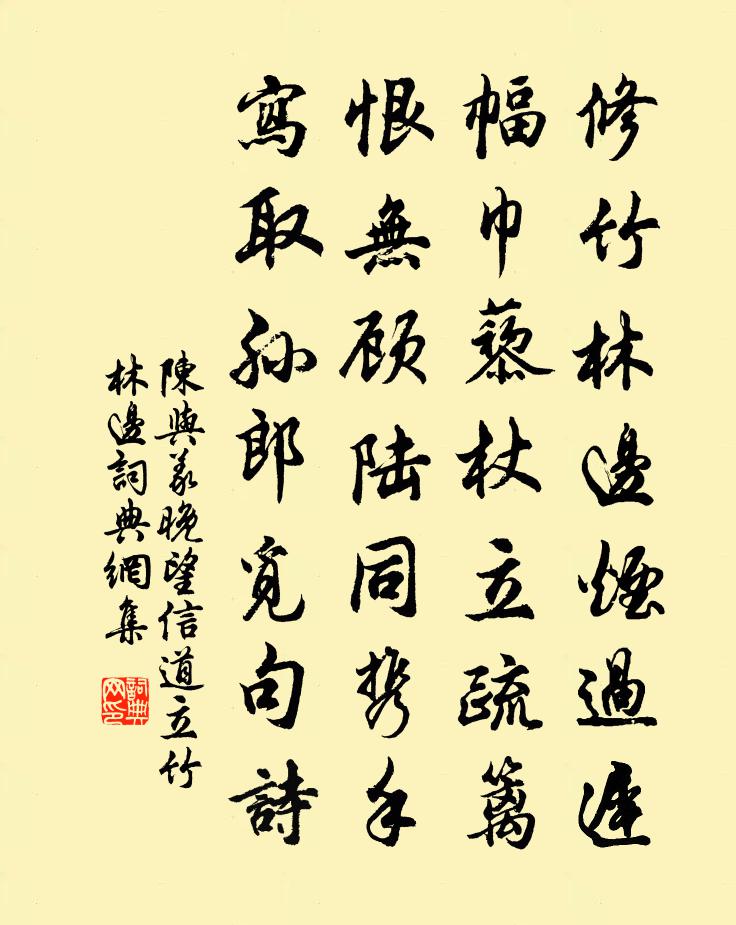 修竹林邊煙過遲
幅巾藜杖立疏籬
恨無顧陸同携手
寫取孫郎覓句詩
陳與義晚望信道立竹
林邊詞典網集
詞典
网印